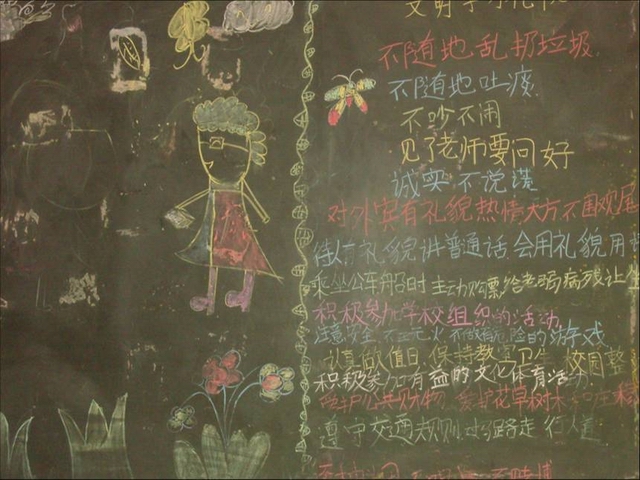 不随地乱扔垃圾
不随地吐痰
不吵不闹
见了老师要问好
诚实不说谎
对外宾有礼貌热情大方不围观尾
待人有礼貌讲普通话会用礼貌用
乘坐公车船时主动购票给老弱病残让
积极参加学校组织的活动
注意安全不玩火不做有危险的游戏
认真做值日保持教室卫生校园整
积极参加有益的文化体育活动
爱护公共财物爱护花草树木
遵守交通规则过马路走人行道